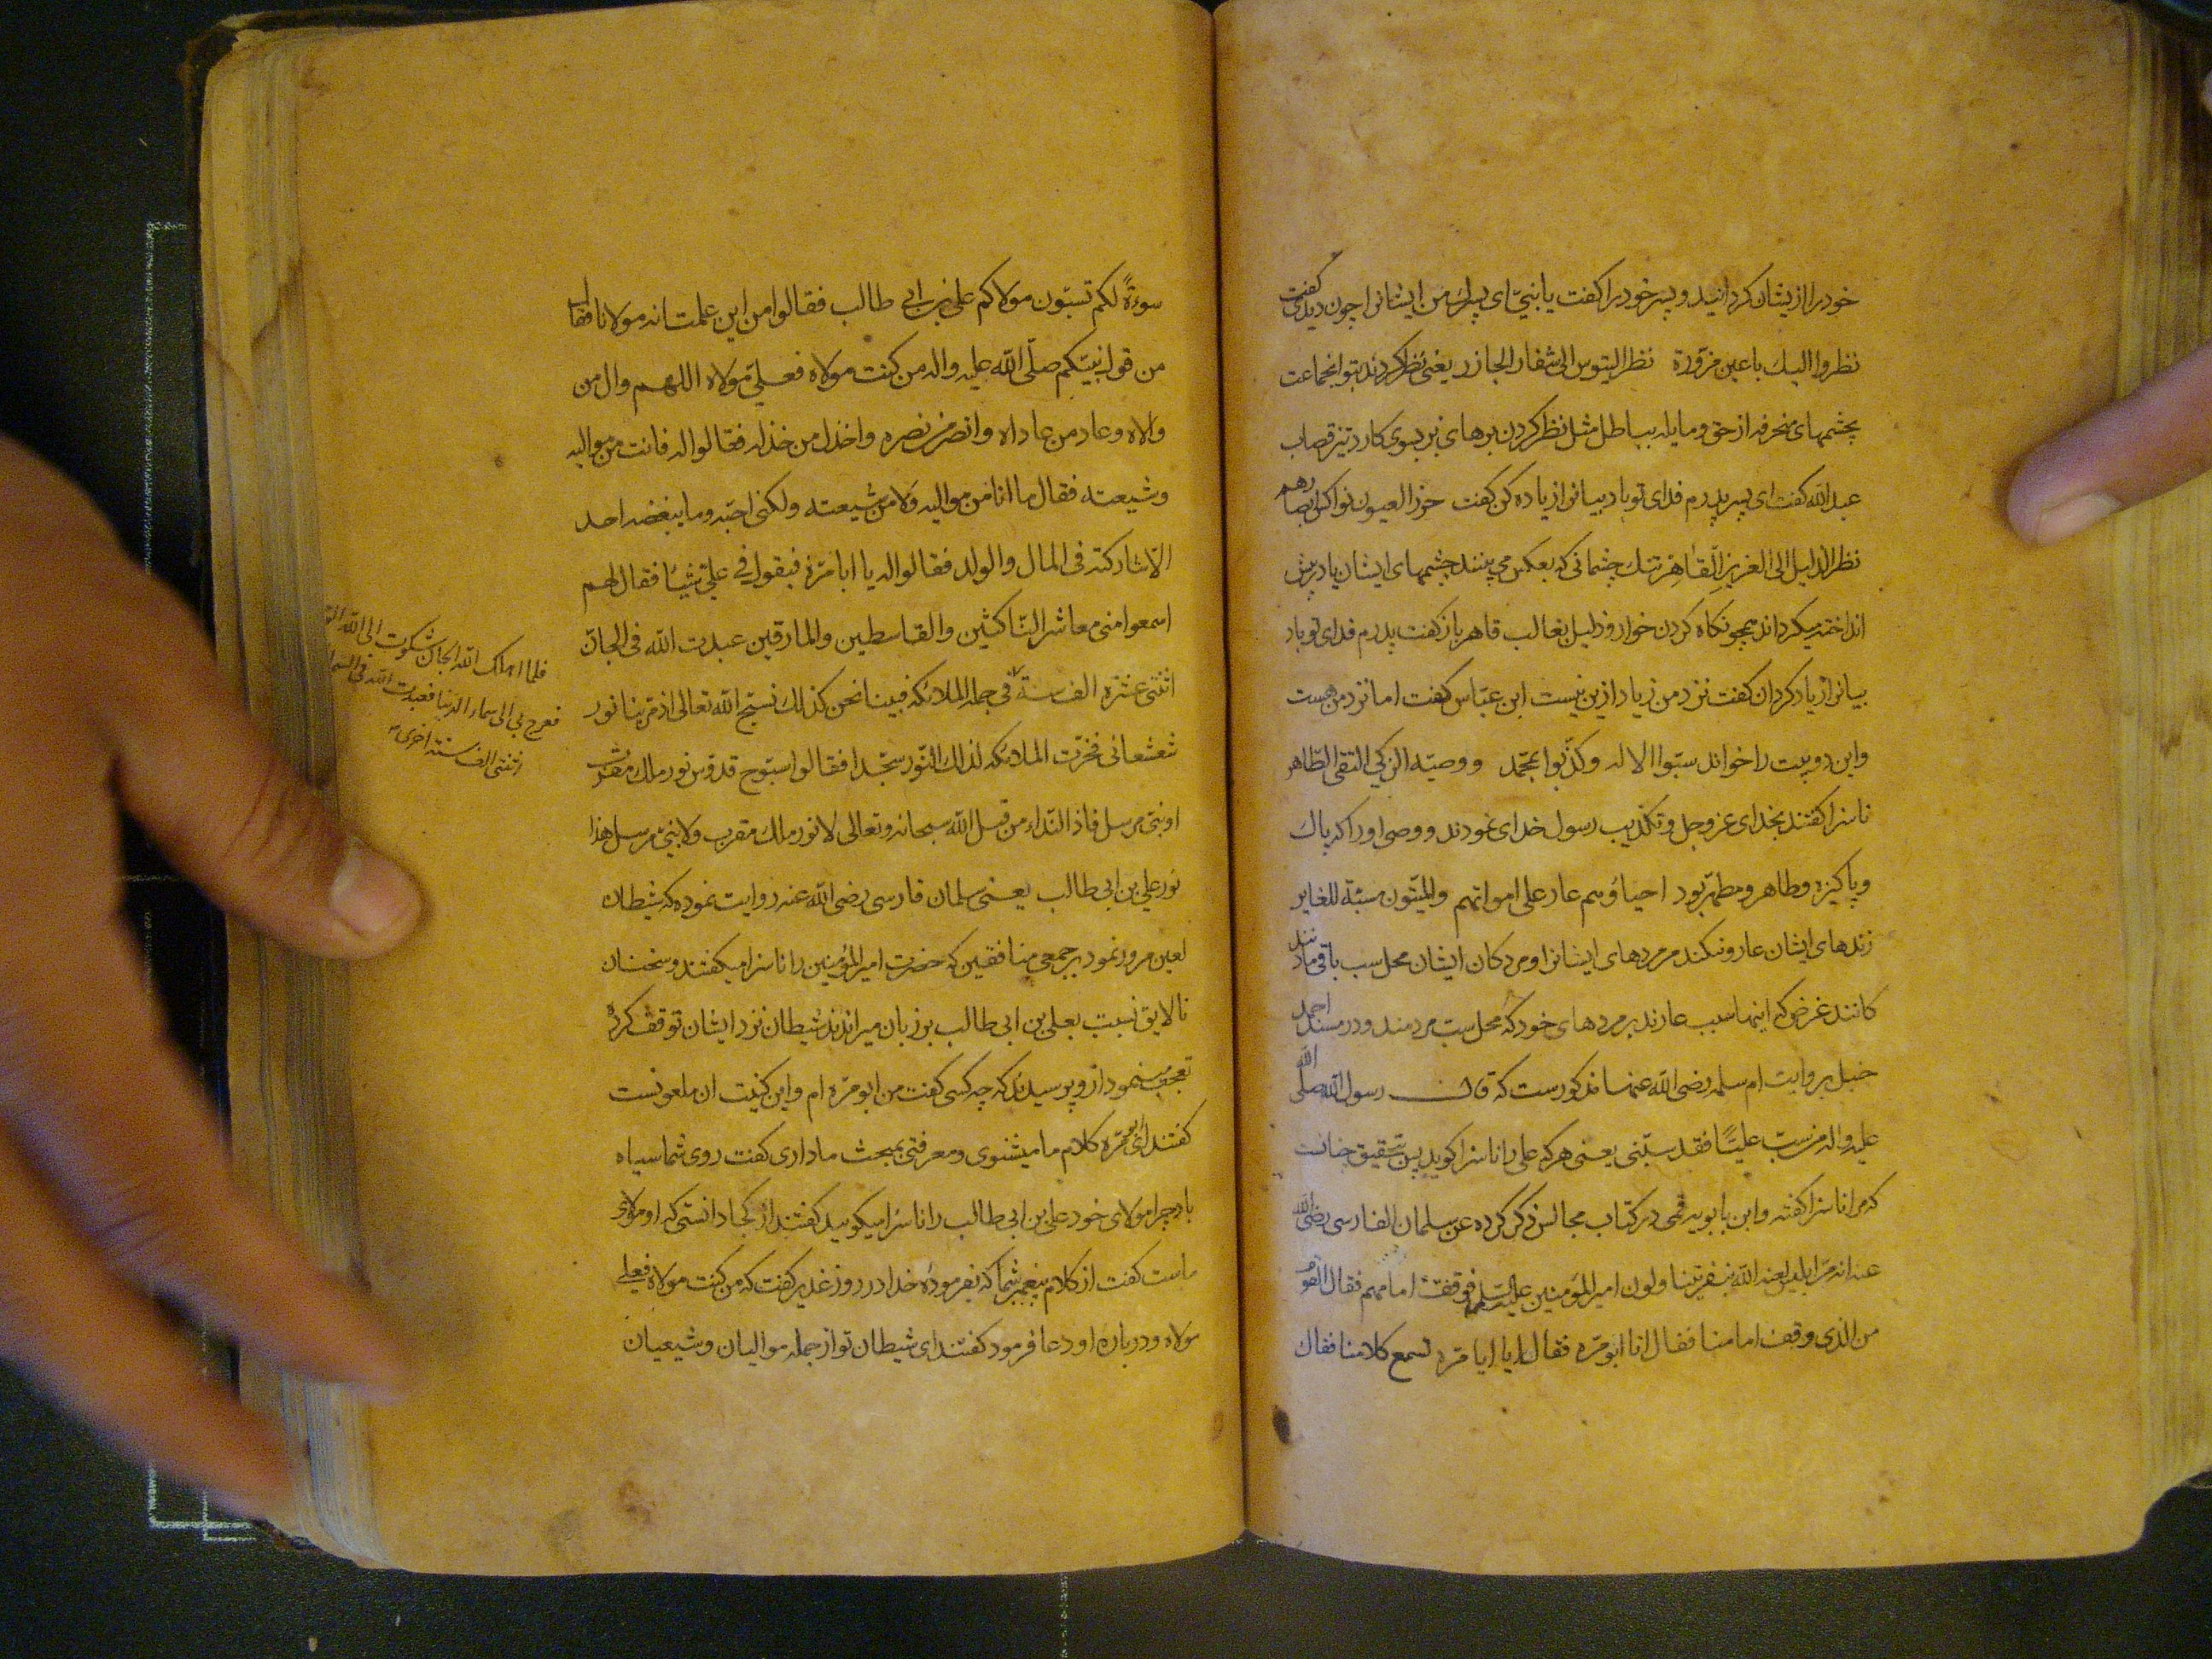 خود را ازیشان کردانید و پسر خود را کفت یا بنیّ ای پسرک من ایشانرا چون دیدی کفت
نظروا الیک باعین مزوّرة نظر التیوس الی شفار الجازر یعنی نظر کردند بتو انجماعت
بچشمهای منحرفه از حق و مایله بباطل مثل نظر کردن بزهای نر بسوی کارد تیز قصاب
عبدالله کفت ای پسر پدرم فدای تو باد بیانرا زیاده کن کفت خزر العیون نواکس ابصارهم
نظر الذلیل الی العزیز القاهر تنک چشمانی که بعکس می بینند چشمهای ایشان یا در پیش
انداخته میکردانند همچو نکاه کردن خوار و ذلیل بغالب قاهر باز کفت پدرم فدای تو باد
بیانرا زیاد کردان کفت نزد من زیاد ازین نیست ابن عبّاس کفت اما نزد من هست
و این دو بیت را خواند سبّوا الاله وکذّبوا بمحمّد ووصیّه الزکی التقی الطّاهر
ناسزا کفتند بخدای عز وجل و تکذیب رسول خدای نمودند و وصی او را که پاک
و پاکیزه و طاهر و مطهّر بود احیاؤهم عار علی امواتهم والمیّتون مسبّة للغابر
زندهای ایشان عار و ننکند مر مردهای ایشانرا و مردکان ایشان محل سب باقی ماند
کانند غرض که اینها سبب عارند بر مردهای خود که محل سبّ مردمند و در مسند احمد
حنبل بروایت ام سلمه رضی الله عنها مذکورست که قال رسول الله صلی الله
علیه واله من سبّ علیّا فقد سبّنی یعنی هر که علی را ناسزا کوید پس بتحقیق چنانست
که مرا ناسزا کفته و ابن بابویه قمی در کتاب مجالس ذکر کرده عن سلمان الفارسی رضی الله
عنه انه مرّ ابلیس لعنه الله بنفر یتناولون امیر المؤمنین علیه السلم فوقف امامهم فقال القوم
من الذی وقف امامنا فقال انا ابو مرّه فقالوا یا ابا مرّه تسمع کلامنا فقال
سوءةً لکم تسبّون مولاکم علی بن ابی طالب فقالوا من این علمت انه مولانا فقال
من قول نبیّکم صلّی الله علیه واله من کنت مولاه فعلیّ مولاه اللهم وال من
والاه وعاد من عاداه وانصر من نصره واخذل من خذله فقالوا له فانت من موالیه
وشیعته فقال ما انا من موالیه ولا من شیعته ولکنی احبّه وما یبغضه احد
الّا شارکته فی المال والولد فقالوا له یا ابا مرّة فتقول فی علیّ شیئا فقال لهم
اسمعوا منی معاشر النّاکثین والقاسطین والمارقین عبدت الله فی الجانّ
اثنتی عشرة الف سنة فی جملة الملائکة فبینا نحن کذلک نسبّح الله تعالی اذ مرّ بنا نور
شعشعانی فخرّت الملائکه لذلک النّور سجّدا فقالوا سبّوح قدّوس نور ملک مقرّب
او نبیّ مرسل فاذا النّداء من قبل الله سبحانه وتعالی لا نور ملک مقرب ولا نبیّ مرسل هذا
نور علی بن ابی طالب یعنی سلمان فارسی رضی الله عنه روایت نموده که شیطان
لعین مرور نمود بر جمعی منافقین که حضرت امیر المؤمنین را ناسزا میکفتند و سخنان
نالایق نسبت بعلی بن ابی طالب بر زبان میراندند شیطان نزد ایشان توقف کرده
تعجب مینمود ازو پرسیدند که چه کسی کفت من ابو مرّه ام و این کنیت ان ملعونست
کفتند ای ابو مرّه کلام ما میشنوی و معرفتی بمبحث ما داری کفت روی شما سیاه
باد چرا مولای خود علی بن ابی طالب را ناسزا میکویید کفتند از کجا دانستی که او مولای
ماست کفت از کلام پیغمبر شما که بفرمودۀ خدا در روز غدیر کفت که من کنت مولاه فعلی
مولاه و درباره او دعا فرمود کفتند ای شیطان تو از جمله موالیان و شیعیان
فلما اهلک الله الجان شکوت الی الله
فعرج بی الی سماء الدنیا فعبدت الله فی السماء
اثنتی الف سنة اخری